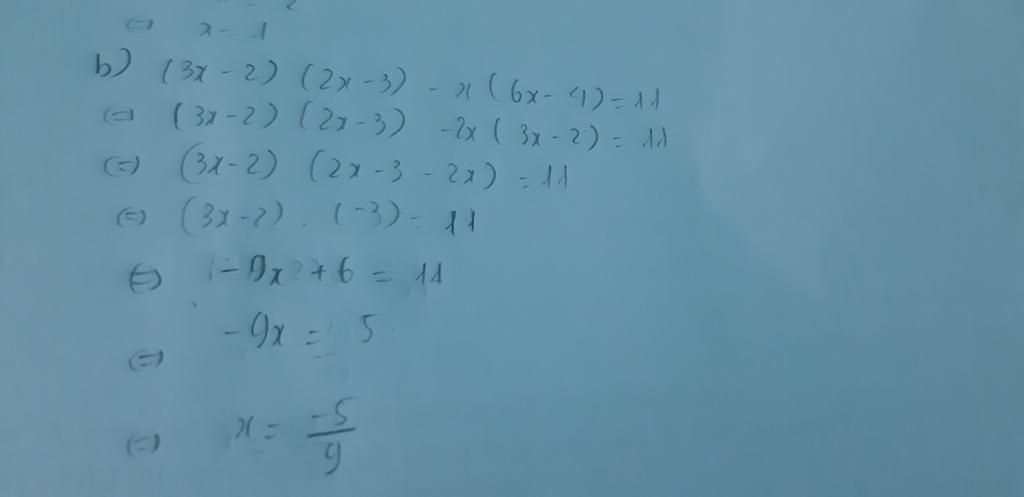 (=) x = 1
b) (3x - 2) (2x - 3) - x (6x - 4) = 11
(=) (3x - 2) (2x - 3) - 2x (3x - 2) = 11
(=) (3x - 2) (2x - 3 - 2x) = 11
(=) (3x - 2) . (-3) = 11
(=) - 9x + 6 = 11
(=) - 9x = 5
(=) x = -5/9